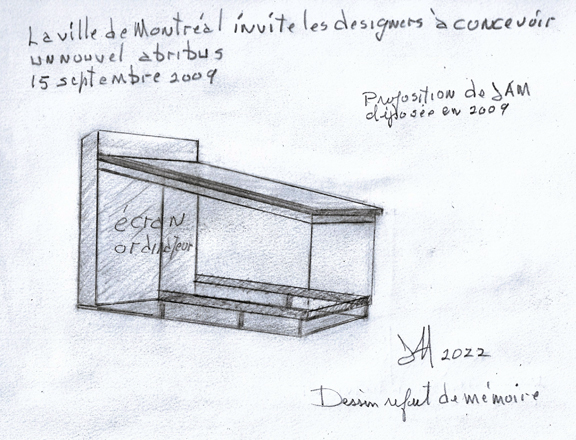 La ville de Montréal invite les designers à concevoir
un nouvel abribus
15 septembre 2009
Proposition de JAM
déposée en 2009
écran
ordinateur
JAM 2022
Dessin refait de mémoire